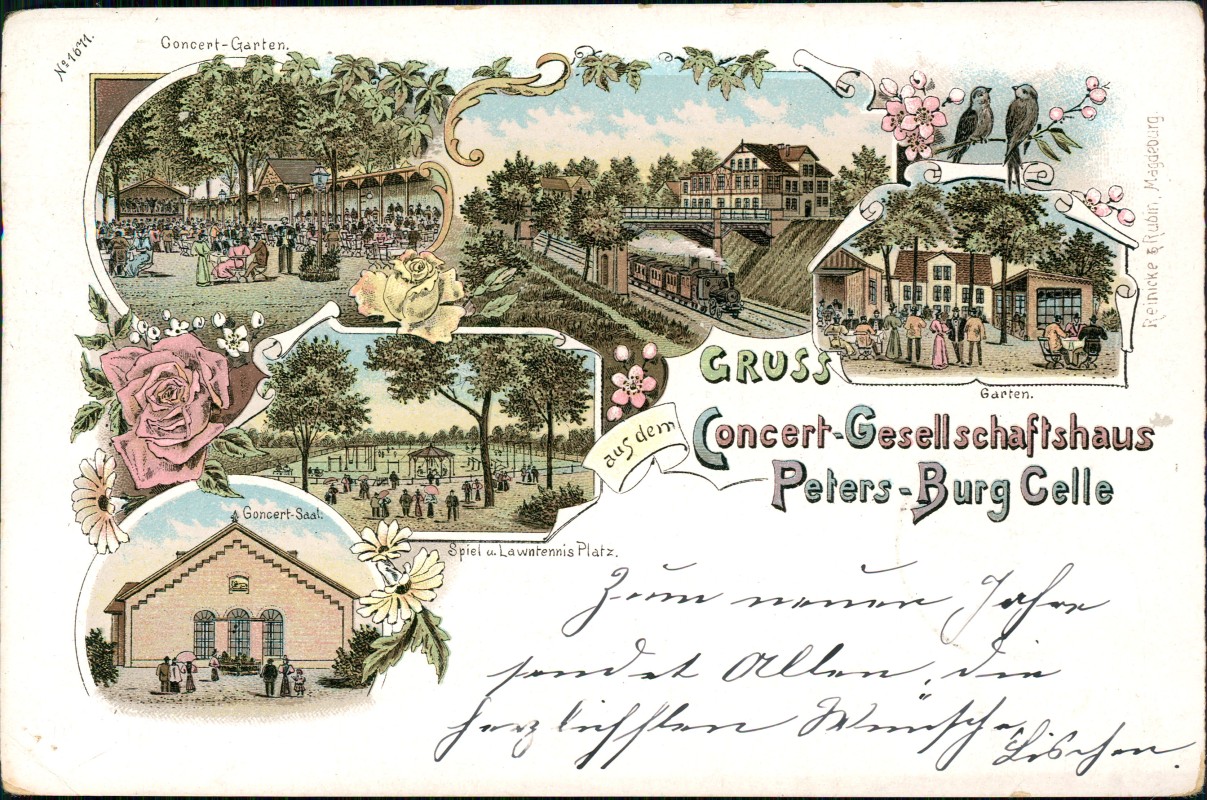 No. 1671.
Concert-Garten.
Reinicke & Rubin, Magdeburg.
Garten.
GRUSS
aus dem
Concert-Gesellschaftshaus
Peters-Burg Celle
Spiel u. Lawntennis Platz.
Concert-Saal.
Zum neuen Jahre
sendet Allen, die
herzlichsten Wünsche
Lischen.